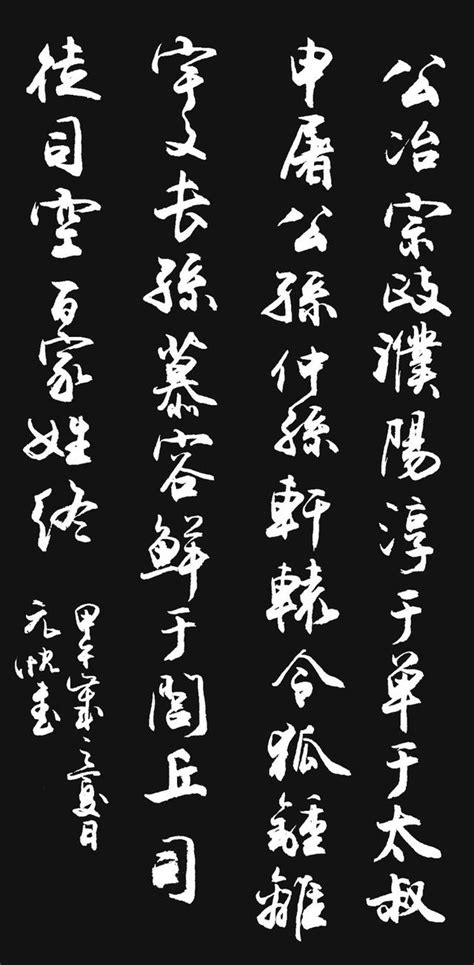 公冶宗政濮陽淳于单于太叔
申屠公孫仲孫軒轅令狐鍾離
宇文長孫慕容鮮于閭丘司
徒司空百家姓終
甲午歲之夏日
元忱書